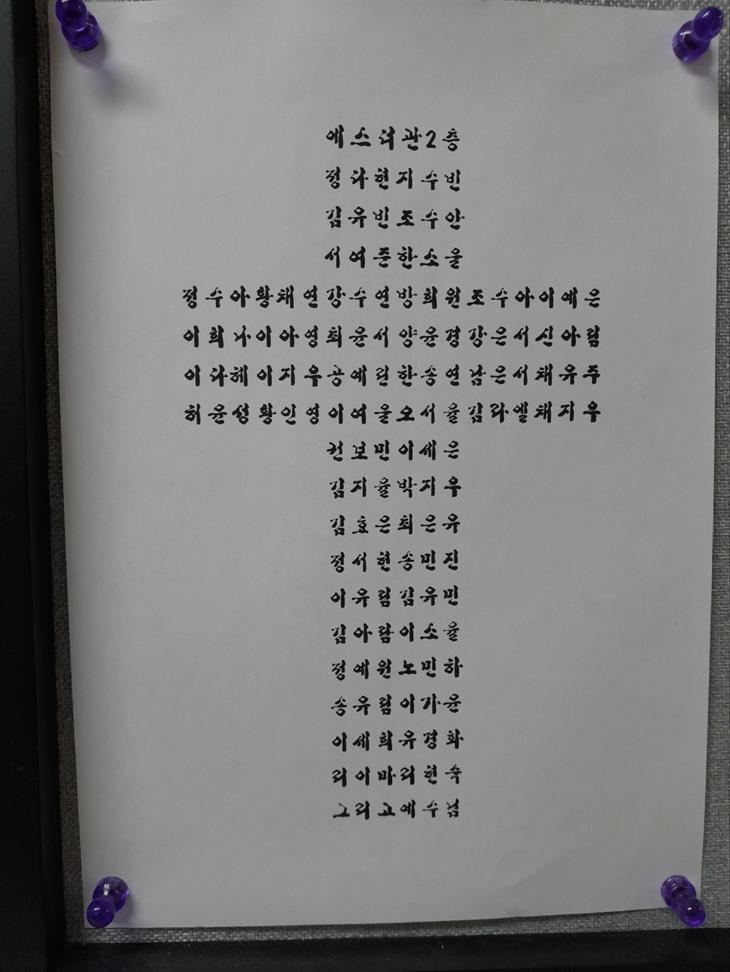 에스더관2층
정다현지수빈
김유빈조수안
서여준한소울
정수아황채연강수연방희원조수아이예은
이희나이아영최윤서양윤경강은서신아림
이다혜이지우공예린한송연남은서채유주
허윤성황인영이여울오서율김라엘채지우
천보민이세은
김지율박지우
김효은최은유
정서현송민진
이유림김유민
김아람이소율
정예원노민하
송유림이가윤
이세희유경화
리이마리현숙
그리고예수님